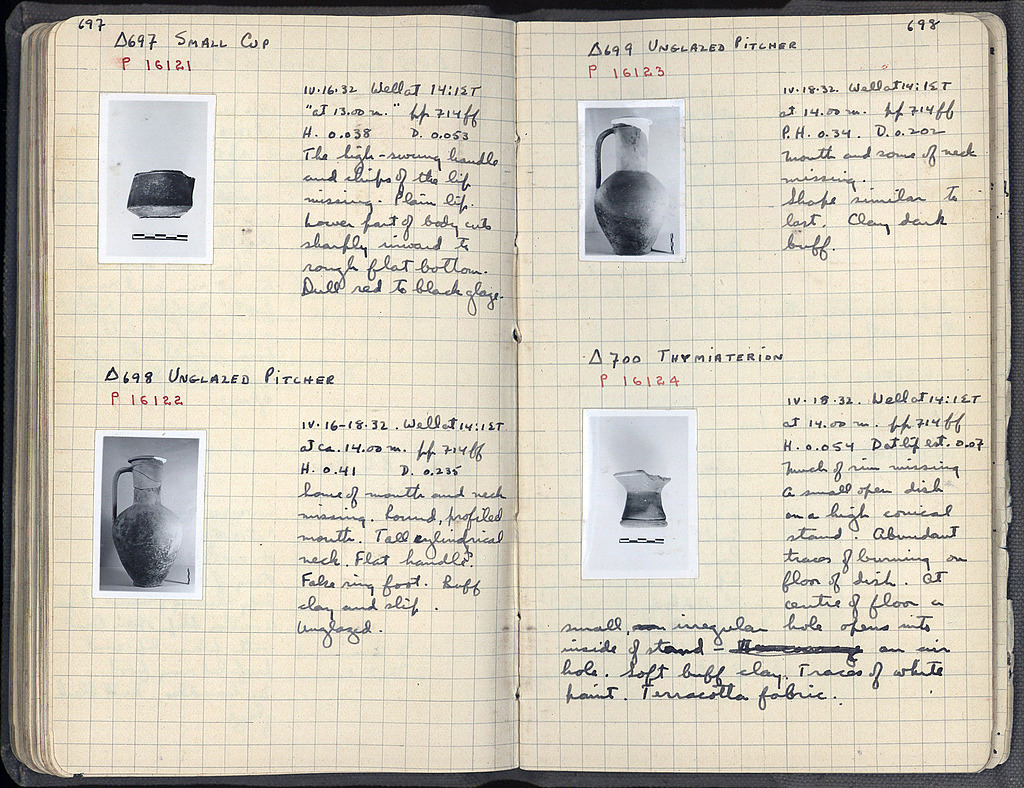 697
Δ697 SMALL CUP
P 16121
IV·16·32 Well at 14:1ΣT
"at 13.00 m." pp 714ff
H. 0.038 D. 0.053
The high-swung handle
and chips of the lip
missing. Plain lip.
Lower part of body cuts
sharply inward to
rough flat bottom.
Dull red to black glaze.
Δ698 UNGLAZED PITCHER
P 16122
IV·16-18·32. Well at 14:1ΣT
at ca. 14.00 m. pp 714ff
H. 0.41 D. 0.235
Some of mouth and neck
missing. Round, profiled
mouth. Tall cylindrical
neck. Flat handle.
False ring foot. Buff
clay and slip.
Unglazed.
698
Δ699 UNGLAZED PITCHER
P 16123
IV·18·32. Well at 14:1ΣT
at 14.00 m. pp 714ff
P.H. 0.34. D. 0.202
Mouth and some of neck
missing.
Shape similar to
last. Clay dark
buff.
Δ700 THYMIATERION
P 16124
IV·18·32. Well at 14:1ΣT
at 14.00 m. pp 714ff
H. 0.054 D at lip est. 0.07
Much of rim missing
A small open dish
on a high conical
stand. Abundant
traces of burning on
floor of dish. At
centre of floor a
small, irregular hole opens into
inside of stand - an air
hole. Soft buff clay. Traces of white
paint. Terracotta fabric.